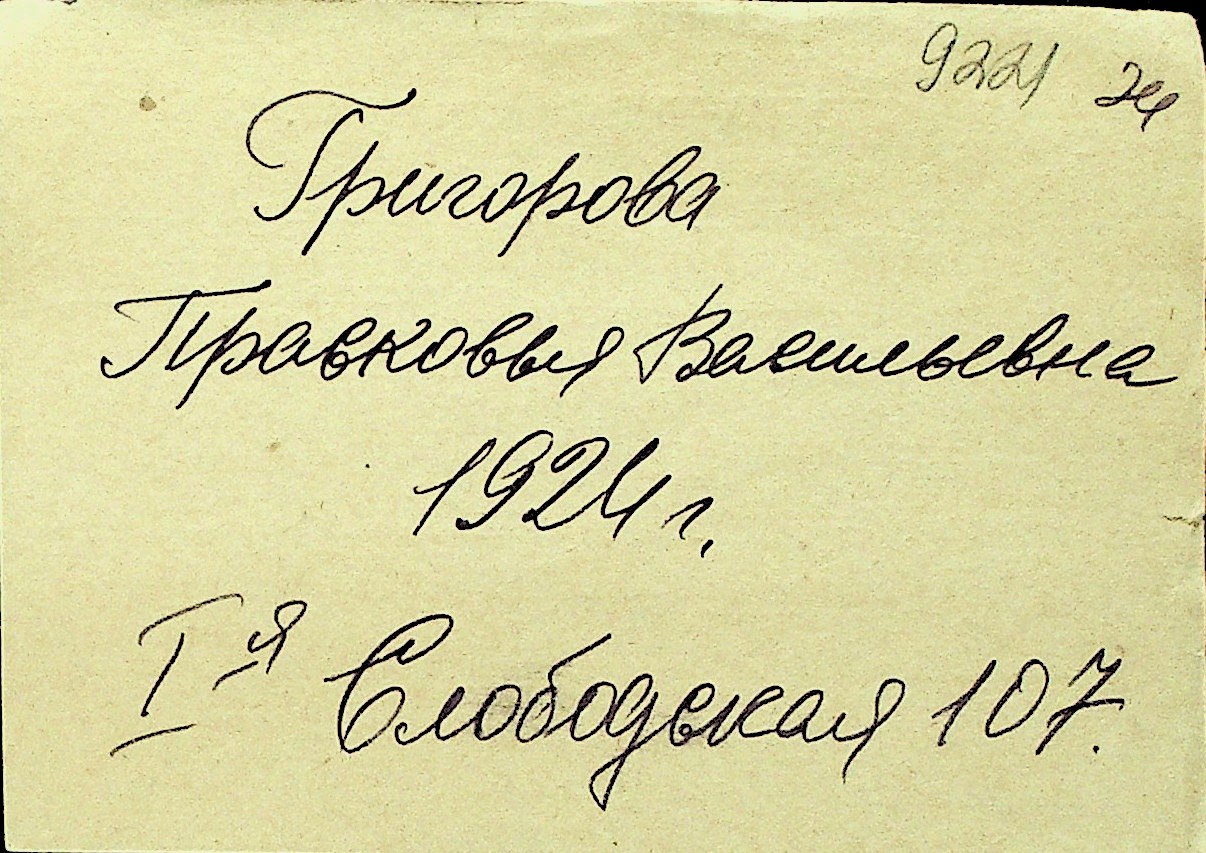 9221
Григорова
Прасковья Васильевна
1924 г.
I я Слободская 107.